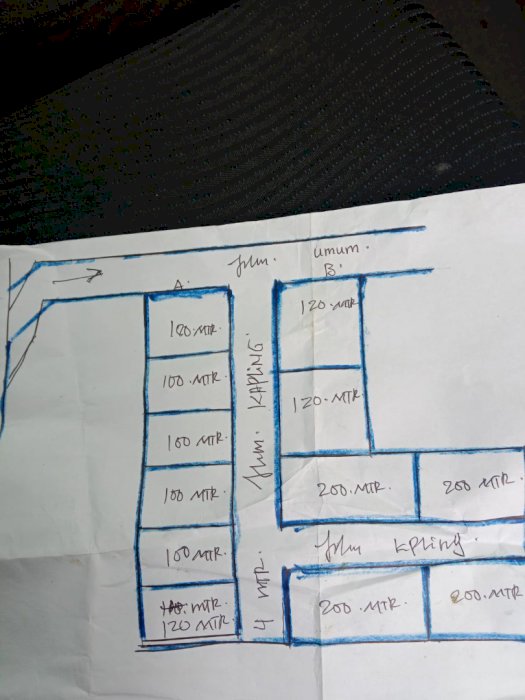 Jln. umum.
A.
B.
120.MTR.
100.MTR.
100 MTR.
100 MTR.
100 MTR.
MTR.
120 MTR.
Jln. KAPLING.
4 MTR.
120.MTR.
120.MTR.
200.MTR.
200 MTR.
Jln kpling.
200.MTR.
200.MTR.